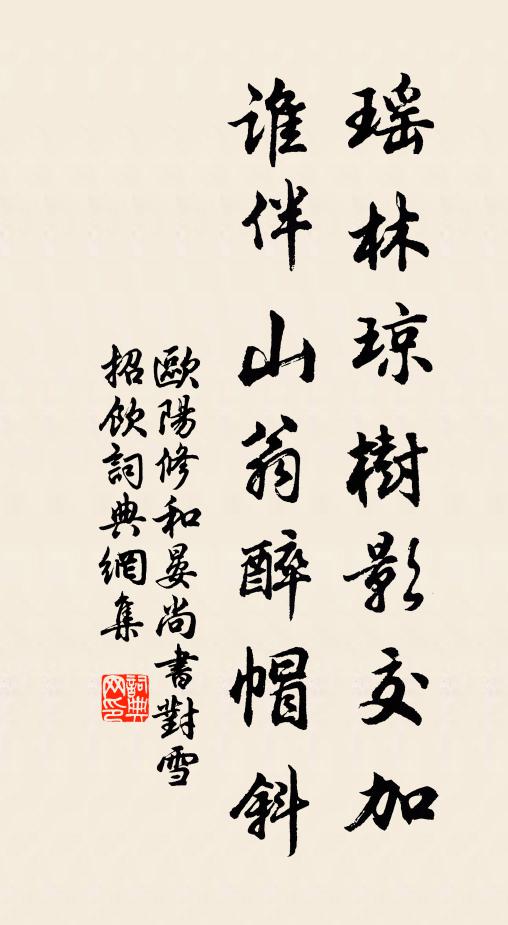 瑶林琼樹影交加
誰伴山翁醉帽斜
歐陽修和晏尚書對雪
招飲詞典網集
詞典網印